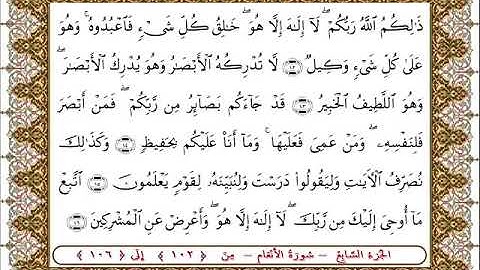 ذَٰلِكُمُ اللَّهُ رَبُّكُمْ ۖ لَا إِلَٰهَ إِلَّا هُوَ ۖ خَالِقُ كُلِّ شَيْءٍ فَاعْبُدُوهُ ۚ وَهُوَ
عَلَىٰ كُلِّ شَيْءٍ وَكِيلٌ ﴿١٠٢﴾ لَا تُدْرِكُهُ الْأَبْصَارُ وَهُوَ يُدْرِكُ الْأَبْصَارَ ۖ
وَهُوَ اللَّطِيفُ الْخَبِيرُ ﴿١٠٣﴾ قَدْ جَاءَكُم بَصَائِرُ مِن رَّبِّكُمْ ۖ فَمَنْ أَبْصَرَ
فَلِنَفْسِهِ ۖ وَمَنْ عَمِيَ فَعَلَيْهَا ۚ وَمَا أَنَا عَلَيْكُم بِحَفِيظٍ ﴿١٠٤﴾ وَكَذَٰلِكَ
نُصَرِّفُ الْآيَاتِ وَلِيَقُولُوا دَرَسْتَ وَلِنُبَيِّنَهُ لِقَوْمٍ يَعْلَمُونَ ﴿١٠٥﴾ اتَّبِعْ
مَا أُوحِيَ إِلَيْكَ مِن رَّبِّكَ ۖ لَا إِلَٰهَ إِلَّا هُوَ ۖ وَأَعْرِضْ عَنِ الْمُشْرِكِينَ ﴿١٠٦﴾
الجزء السابع – سورة الأنعام – من ﴿ ١٠٢ ﴾ إلى ﴿ ١٠٦ ﴾